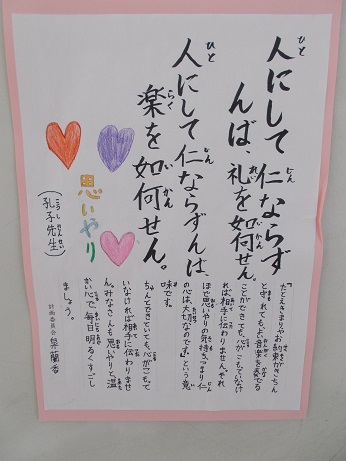 人にして仁ならず
んば、礼を如何せん。
人にして仁ならずんは、
楽を如何せん。
思いやり
(孔子先生)
「たとえきまりやお約束がきちん
と守れてもよい音楽を奏でる
ことができても、心がこもっていなけ
れば相手に伝わりません。それ
ほど思いやりの気持ち、つまり仁
の心は、大切なのです」という意
味です。
ちゃんとできていても、心がこもって
いなければ相手に伝わりませ
ん。みなさんも思いやりと温
かい心で毎日明るくすごし
ましょう。
計画委員会